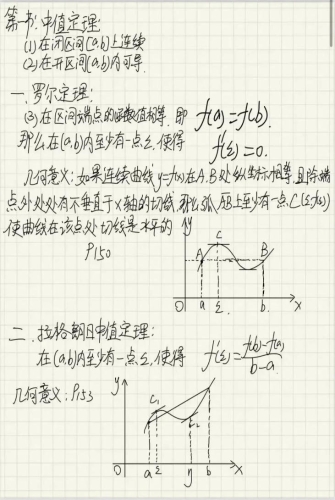 第一节:中值定理:
(1)在闭区间[a,b]上连续
(2)在开区间(a,b)内可导.
一.罗尔定理:
(3)在区间端点的函数值相等,即 f(a)=f(b).
那么在(a,b)内至少有一点ξ,使得 f'(ξ)=0.
几何意义:如果连续曲线y=f(x)在A.B处纵坐标相等且除端
点外处处有不垂直于x轴的切线,那么弧AB上至少有一点C(ξ,f(ξ))
使曲线在该点处切线是水平的
P150
y
C
A
B
O a ξ b x
二.拉格朗日中值定理:
在(a,b)内至少有一点ξ,使得 f'(ξ)=f(b)-f(a)/b-a
几何意义:P153
y
C₁
C₂
O a ξ y b x